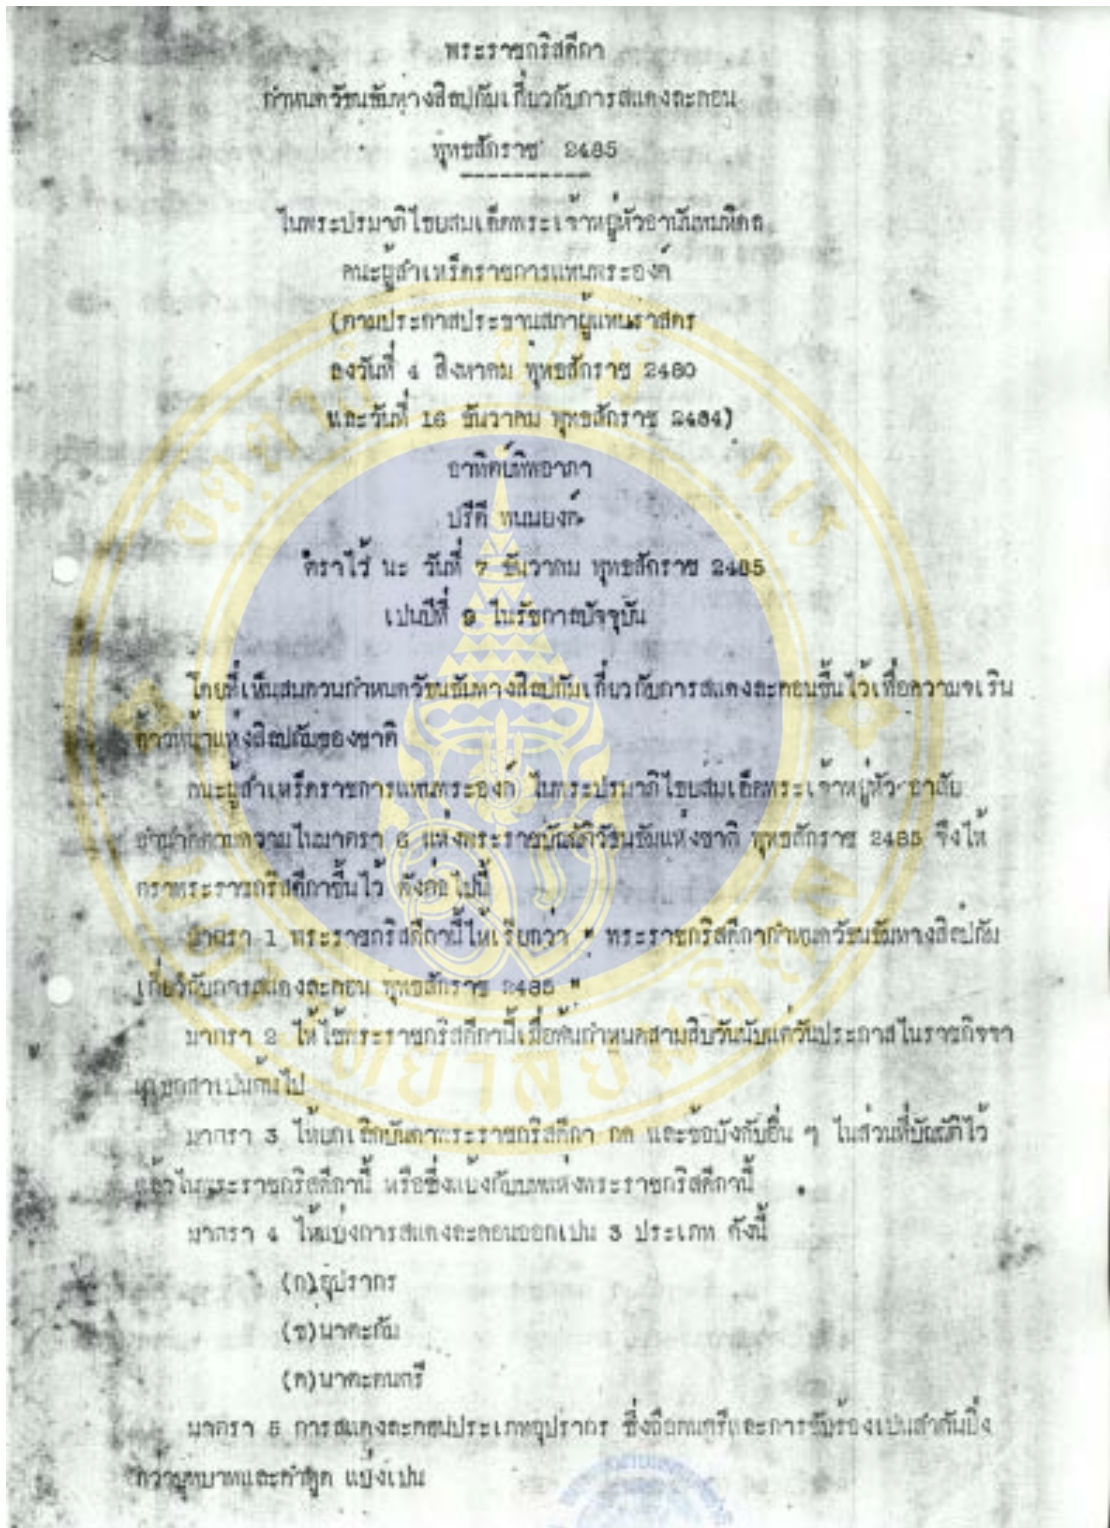 พระราชกริสดีกา
กำหนดวัธนธัมทางสิลปกัมเกี่ยวกับการสแดงละคอน
พุทธสักราช 2485
----------
ในพระปรมาภิไธยสมเด็ดพระเจ้าหยู่หัวอานันทมหิดล
คนะผู้สำเหร็ดราชการแทนพระองค์
(ตามประกาสประธานสภาผู้แทนราสดร
ลงวันที่ 4 สิงหาคม พุทธสักราช 2480
และวันที่ 16 ธันวาคม พุทธสักราช 2484)
อาทิตย์ทิพอาภา
ปรีดี พนมยงค์
ตราไว้ นะ วันที่ 7 ธันวาคม พุทธสักราช 2485
เปนปีที่ 9 ในรัชกาลปัจจุบัน
โดยที่เห็นสมควนกำหนดวัธนธัมทางสิลปกัมเกี่ยวกับการสแดงละคอนขึ้นไว้เพื่อความจเริน
ก้าวหน้าแห่งสิลปกัมของชาติ
คนะผู้สำเหร็ดราชการแทนพระองค์ ในพระปรมาภิไธยสมเด็ดพระเจ้าหยู่หัว อาสัย
อำนาดตามความในมาตรา 6 แห่งพระราชบัญญัติวัธนธัมแห่งชาติ พุทธสักราช 2485 จึงไห้
ตราพระราชกริสดีกาขึ้นไว้ ดังต่อไปนี้
มาตรา 1 พระราชกริสดีกานี้ไห้เรียกว่า " พระราชกริสดีกากำหนดวัธนธัมทางสิลปกัม
เกี่ยวกับการสแดงละคอน พุทธสักราช 2485 "
มาตรา 2 ไห้ไช้พระราชกริสดีกานี้เมื่อพ้นกำหนดสามสิบวันนับแต่วันประกาสในราชกิจจา
นุเบกสาเปนต้นไป
มาตรา 3 ไห้ยกเลิกบันดาพระราชกริสดีกา กด และข้อบังคับอื่น ๆ ในส่วนที่บัญญัติไว้
แล้วในพระราชกริสดีกานี้ หรือซึ่งแย้งกับบทแห่งพระราชกริสดีกานี้
มาตรา 4 ไห้แบ่งการสแดงละคอนออกเปน 3 ประเภท ดังนี้
(ก)อุปรากร
(ข)นาตะกัม
(ค)นาตะดนตรี
มาตรา 5 การสแดงละคอนประเภทอุปรากร ซึ่งถือดนตรีและการขับร้องเปนสำคันยิ่ง
กว่าบุทบาทและคำพูด แบ่งเปน